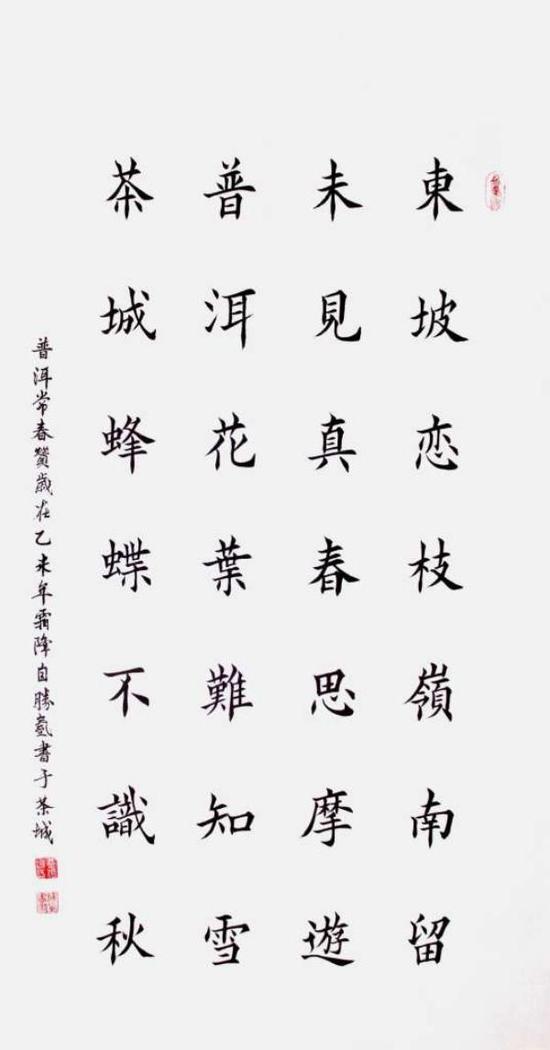 東坡恋枝嶺南留
未見真春思摩遊
普洱花葉難知雪
茶城蜂蝶不識秋
普洱常春贊歲在乙未年霜降自勝藝書于茶城